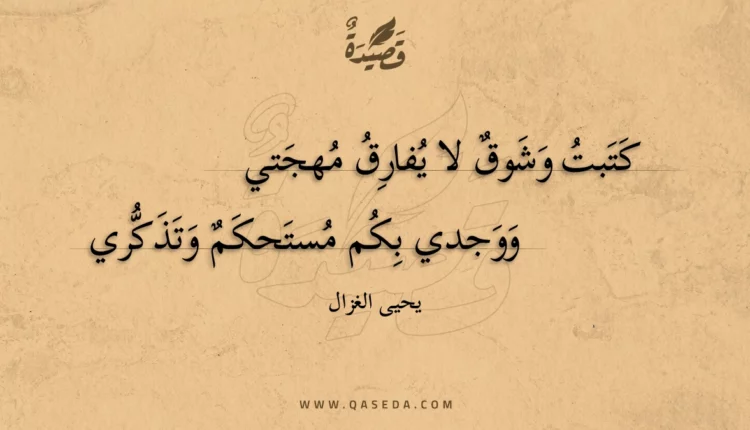 قَصِيدَةٌ
كَتَبتُ وَشَوقٌ لا يُفارِقُ مُهجَتي
وَوَجدي بِكُم مُستَحكَمٌ وَتَذَكُّري
يحيى الغزال
WWW.QASEDA.COM